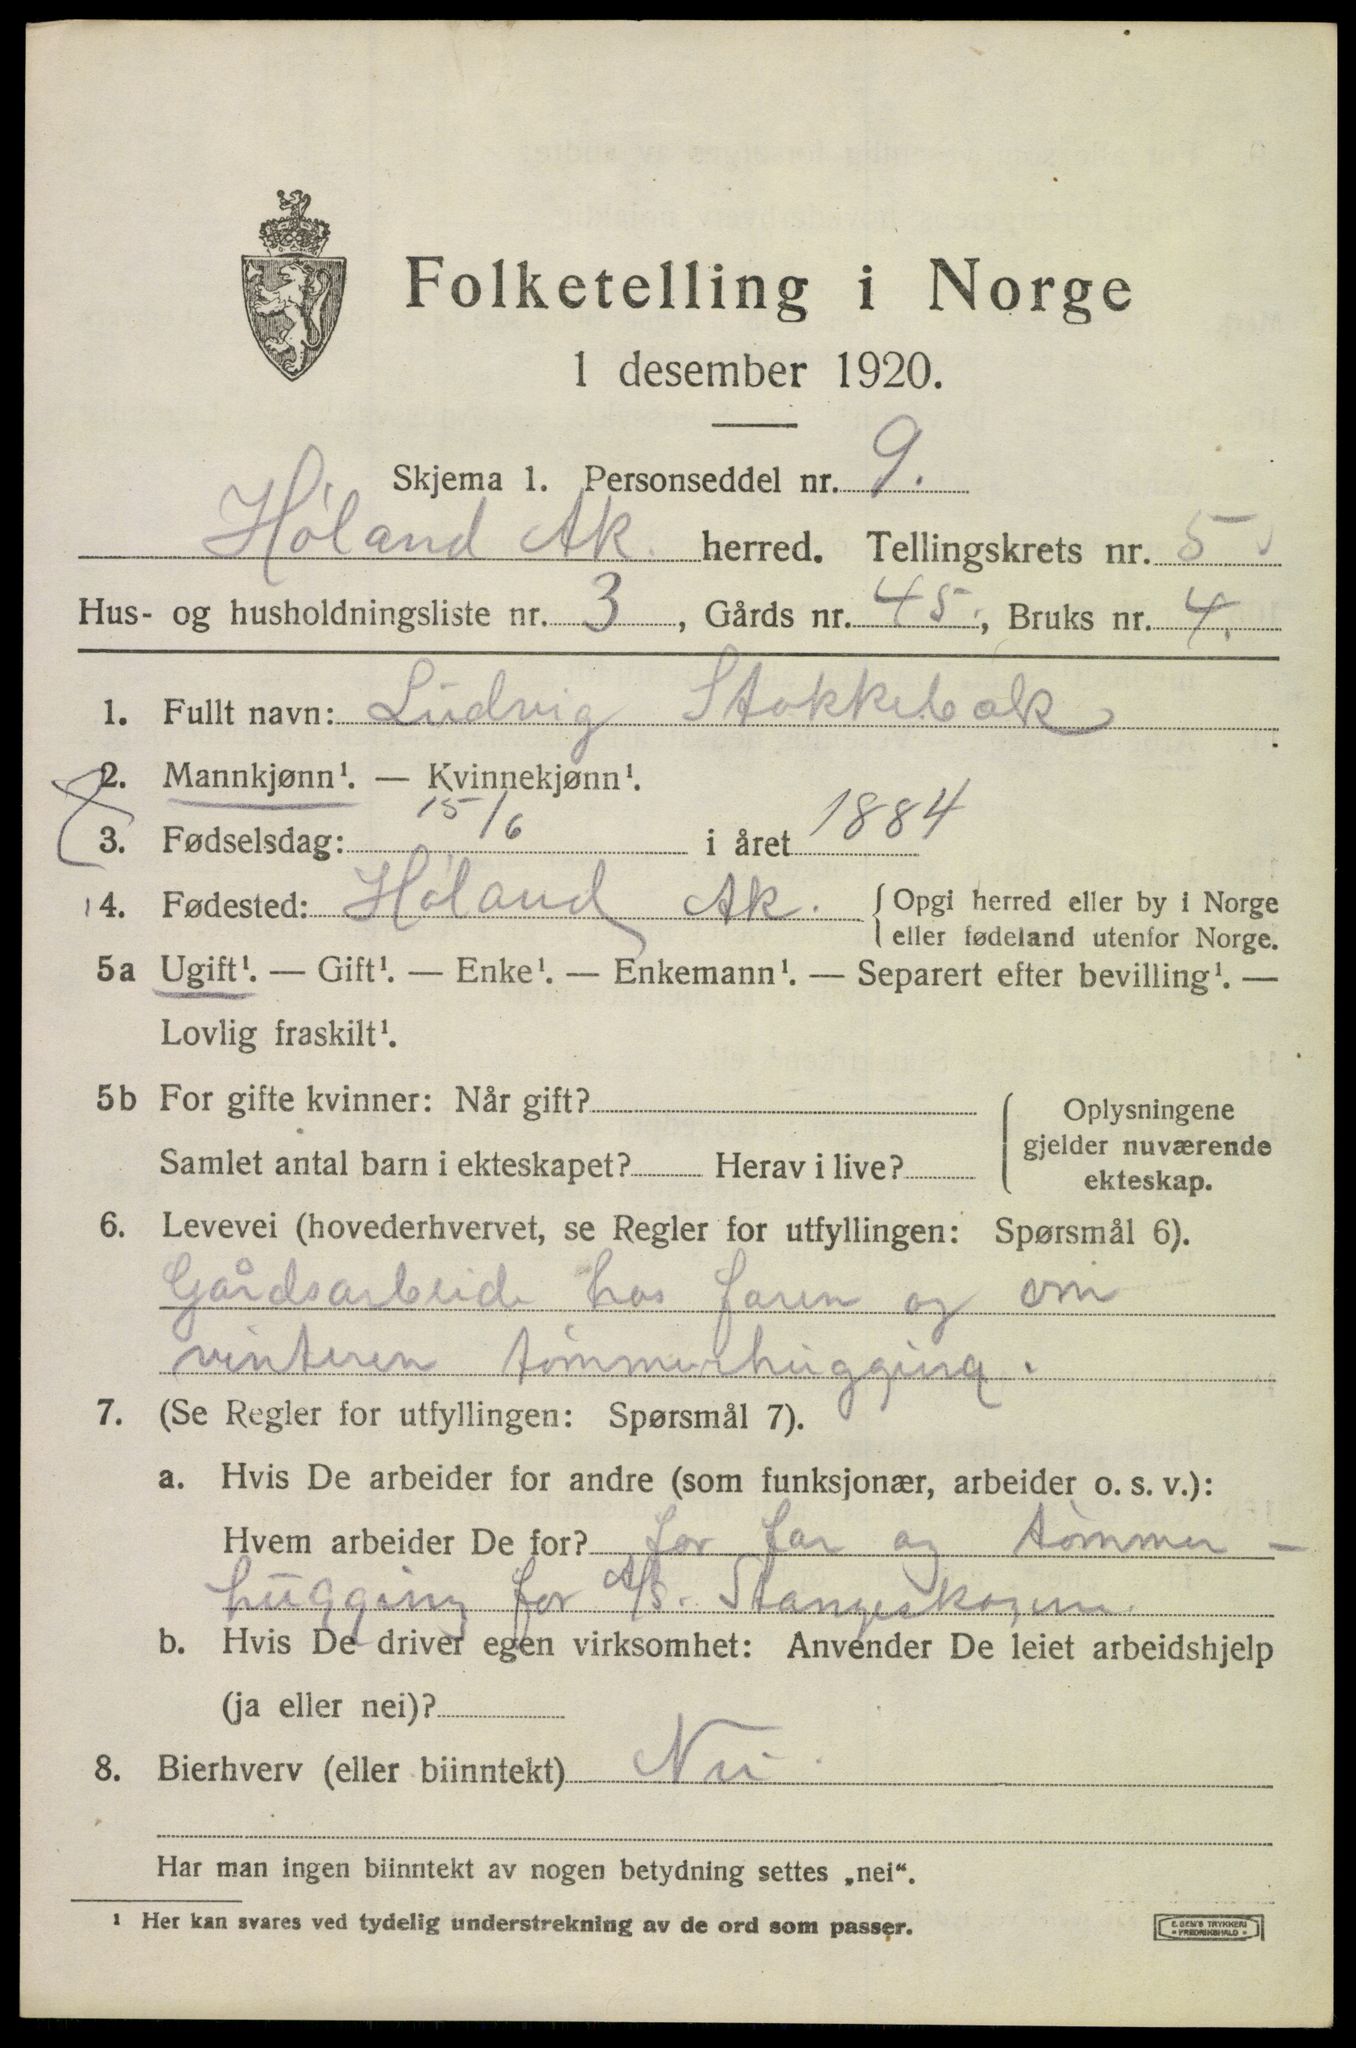 Folketelling i Norge
1 desember 1920.
Skjema 1. Personseddel nr. 9.
Høland Ak. herred. Tellingskrets nr. 5
Hus- og husholdningsliste nr. 3, Gårds nr. 45, Bruks nr. 4.
1. Fullt navn: Ludvig Stokkebæk
2. Mannkjønn¹. — Kvinnekjønn¹.
3. Fødselsdag: 15/6 i året 1884
4. Fødested: Høland Ak. { Opgi herred eller by i Norge
eller fødeland utenfor Norge.
5a Ugift¹. — Gift¹. — Enke¹. — Enkemann¹. — Separert efter bevilling¹. —
Lovlig fraskilt¹.
5b For gifte kvinner: Når gift?
Samlet antal barn i ekteskapet? Herav i live?
Oplysningene
gjelder nuværende
ekteskap.
6. Levevei (hovederhvervet, se Regler for utfyllingen: Spørsmål 6).
Gårdsarbeide hos faren og om
vinteren tømmerhugging.
7. (Se Regler for utfyllingen: Spørsmål 7).
a. Hvis De arbeider for andre (som funksjonær, arbeider o. s. v.):
Hvem arbeider De for? for far og tømmer-
hugging for A/S. Stangeskogene.
b. Hvis De driver egen virksomhet: Anvender De leiet arbeidshjelp
(ja eller nei)?
8. Bierhverv (eller biinntekt) Nei.
Har man ingen biinntekt av nogen betydning settes „nei“.
¹ Her kan svares ved tydelig understrekning av de ord som passer.
E. SEM'S TRYKKERI
FREDRIKSHALD